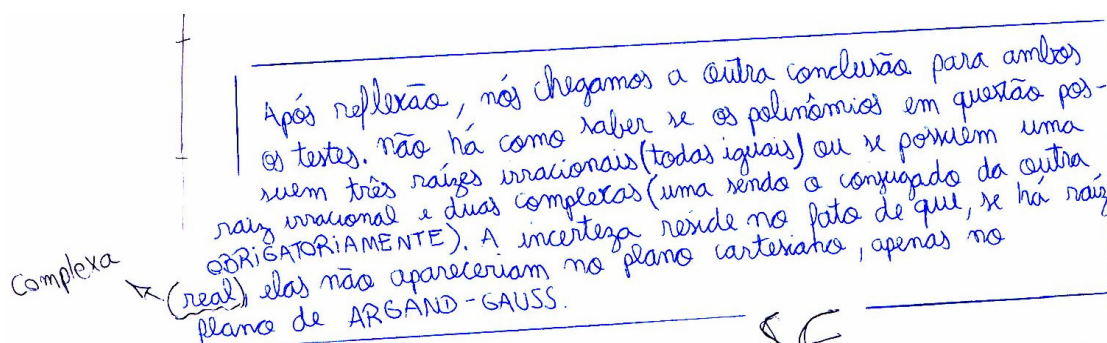 Após reflexão, nós chegamos a outra conclusão para ambos
os testes. não há como saber se os polinômios em questão pos-
suem três raízes irracionais (todas iguais) ou se possuem uma
raiz irracional e duas complexas (uma sendo o conjugado da outra
OBRIGATORIAMENTE). A incerteza reside no fato de que, se há raiz
complexa (real), elas não apareceriam no plano cartesiano, apenas no
plano de ARGAND-GAUSS.